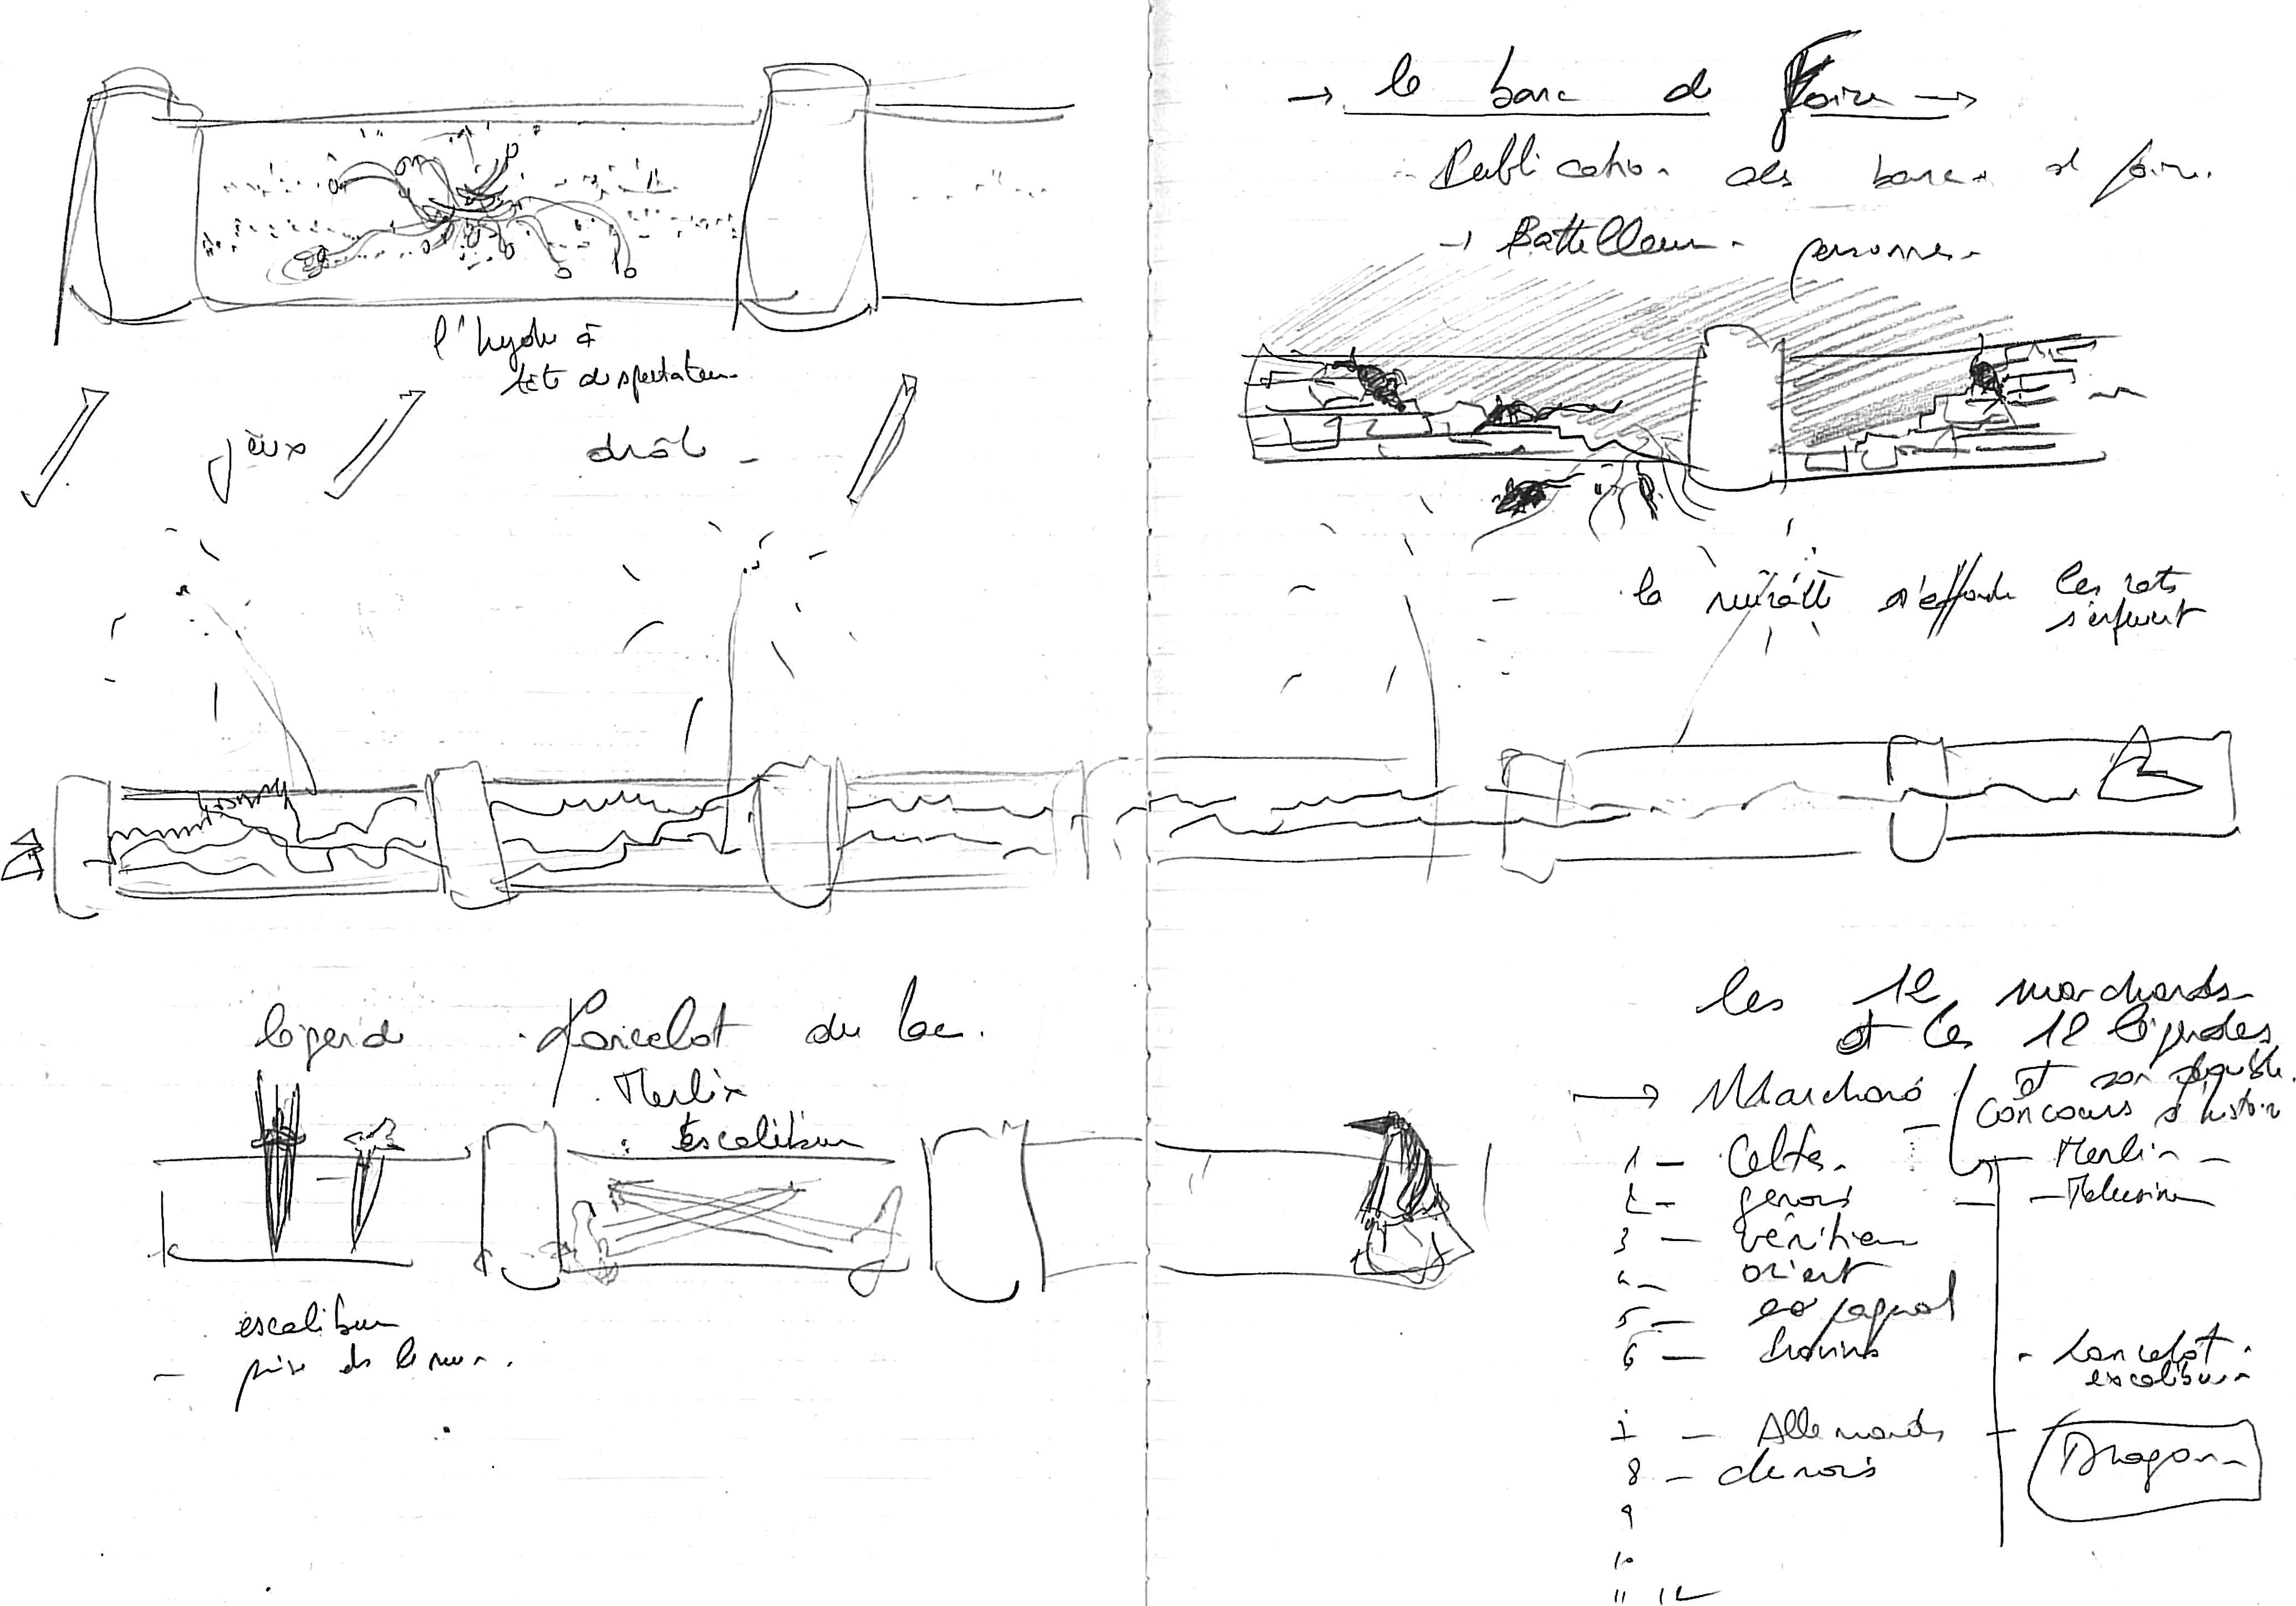 l'hydre à
tête de spectateur
jeux drôle -
→ le banc de Foire →
Publication des bancs de foire.
→ Battelleur - personne -
- la muraille s'effondre les rats
s'enfuient
légende Lancelot du lac.
Merlin
: escalibur
escalibur
- prise ds le mur.
les 12 marchands
et les 12 légendes
→ Marchand et son double.
concours d'histoire
1 - Celtes - Merlin -
2 - genois - Melusine
3 - vénitien
4 - orient
5 - espagnol
6 - - Lancelot -
escalibur
7 - Allemands - Dragon
8 - danois
9
10
11 12